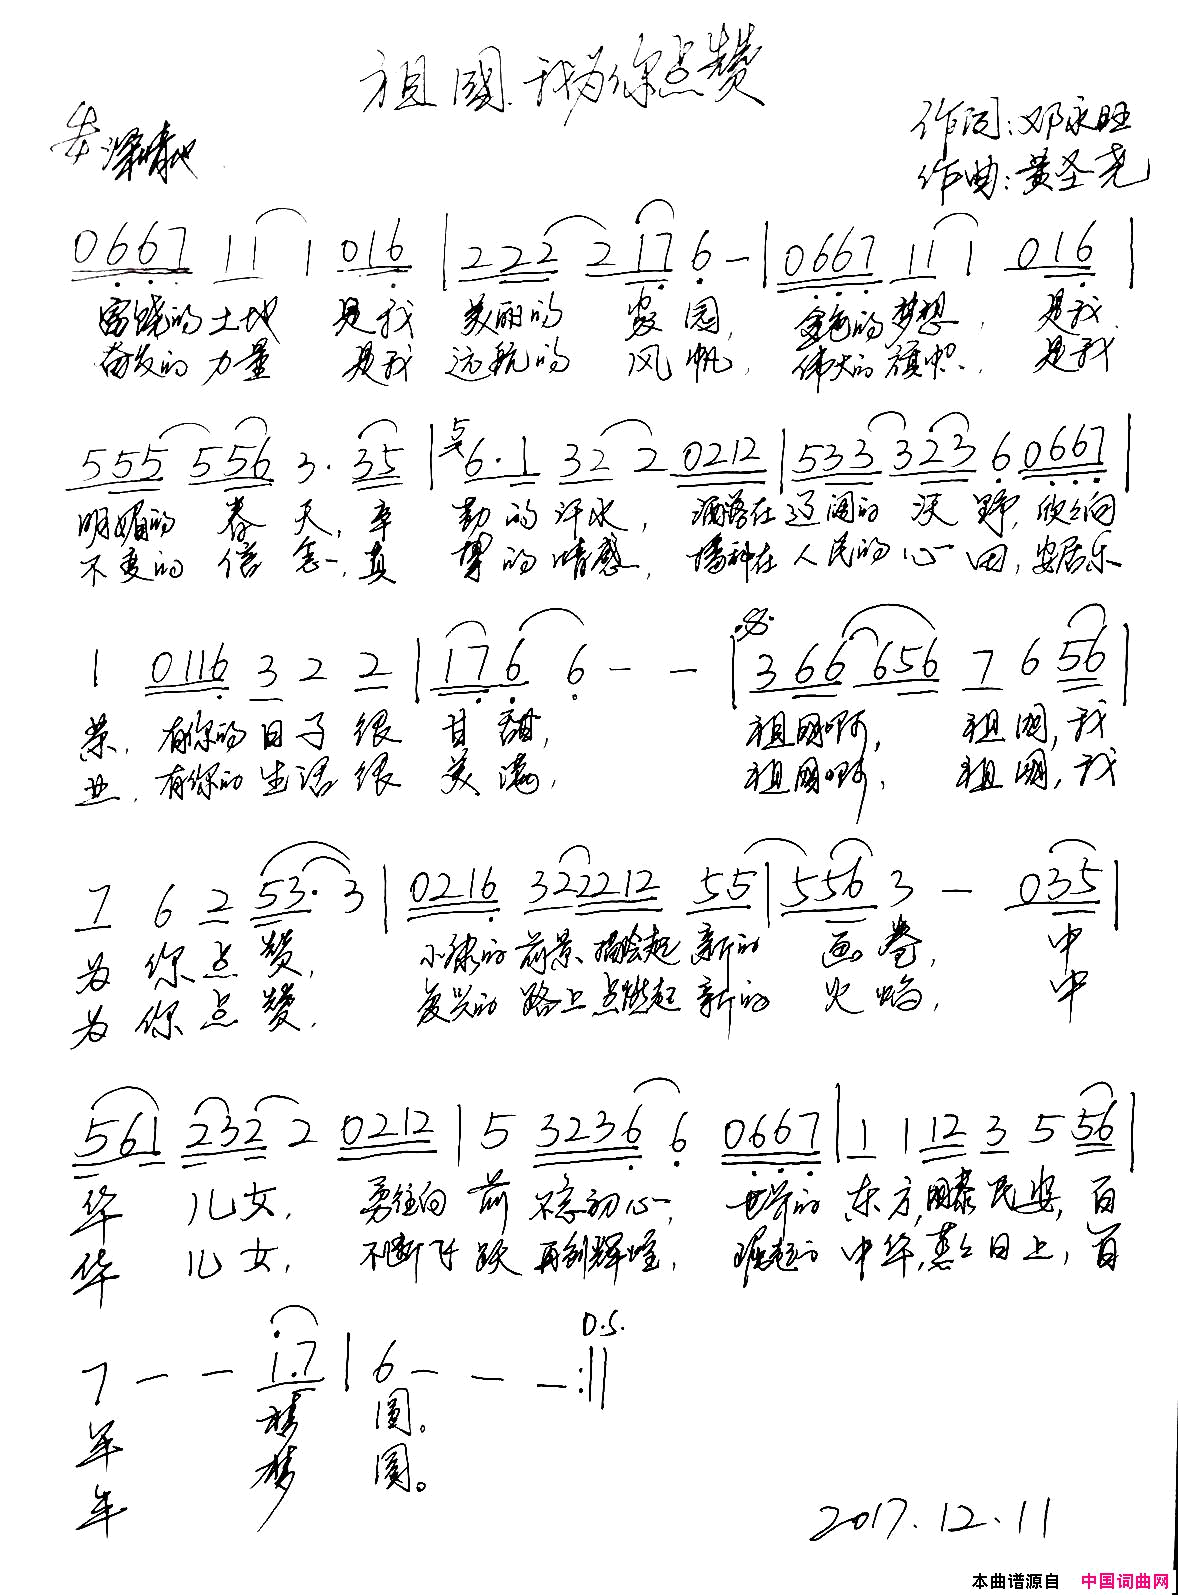 祖國,我为你点赞
深情地
作词:邓永旺
作曲:黄圣尧
0667 11 1 016 | 222 2 17 6 - | 0667 11 1 016 |
富饶的土地 是我 美丽的 家园, 金色的梦想, 是我
奋发的力量 是我 远航的 风帆, 伟大的旗帜, 是我
555 556 3· 35 | 5 6·1 32 2 0212 | 533 323 6 0667 |
明媚的 春天, 辛 勤的汗水, 洒落在辽阔的 沃野, 欣欣向
不变的 信念, 真 挚的情感, 播种在人民的心田, 安居乐
1 0116 3 2 2 | 17 6 6 - - | 3 66 656 7 6 56 |
荣, 有你的日子很 甘甜, 祖国啊, 祖国, 我
业, 有你的生活很 美满, 祖国啊, 祖國, 我
7 6 2 53· 3 | 0216 322212 55 | 556 3 - 035 |
为你点赞, 小康的前景描绘起新的 画卷, 中
为你点赞, 复兴的路上点燃起新的 火焰, 中
561 232 2 0212 | 5 3236 6 0667 | 1 1 12 3 5 56 |
华 儿女, 勇往向前 不忘初心, 世界的东方,國泰民安, 百
华 儿女, 不断飞跃 再创辉煌, 崛起的中华,蒸蒸日上, 百
7 - - 1·7 | 6 - - - :||
D.S.
年 梦 圆。
年 梦 圆。
2017.12.11
本曲谱源自 中国词曲网